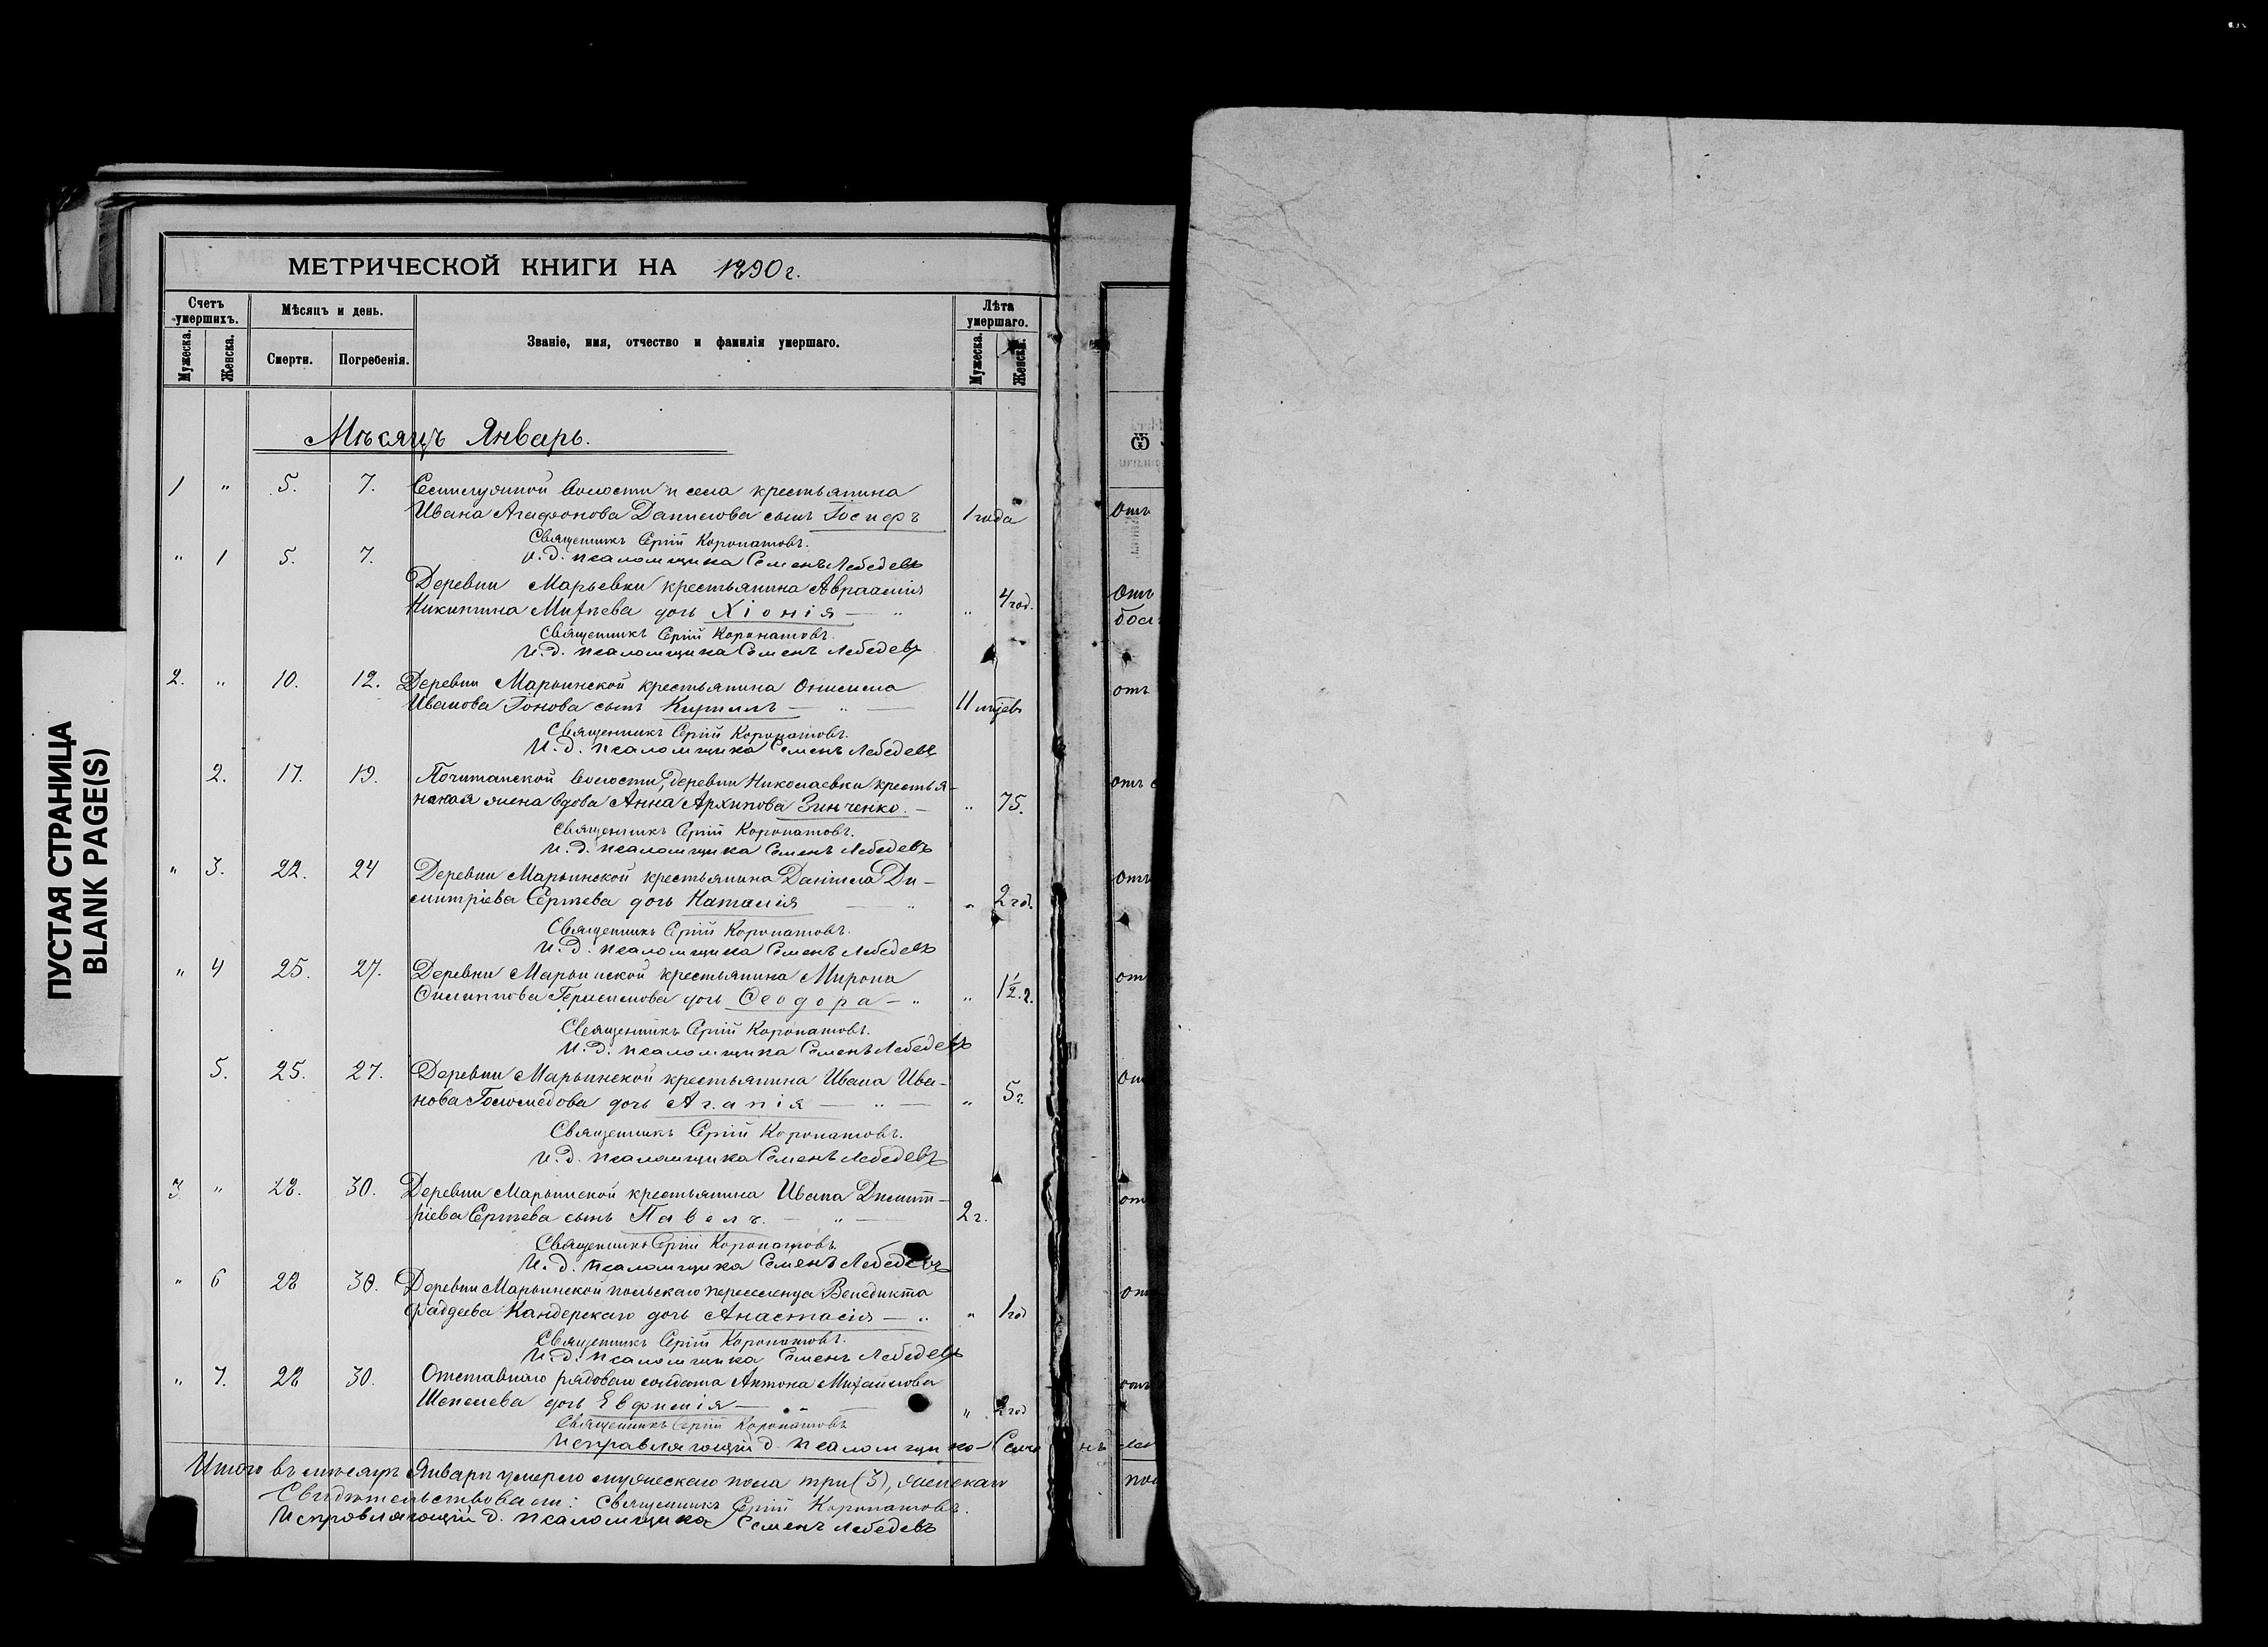 ПУСТАЯ СТРАНИЦА
BLANK PAGE(S)
МЕТРИЧЕСКОЙ КНИГИ НА 1890 г.
Счетъ умершихъ.
Мѣсяцъ и день.
Званіе, имя, отчество и фамилія умершаго.
Лѣта умершаго.
Мужеска.
Женска.
Смерти.
Погребенія.
Мужеска.
Женска.
Мѣсяцъ Январь.
1 " 5. 7. волости и села крестьянина
Ивана Агафонова Данилова сынъ Іосифъ 1 года
Священникъ Сергій Коронатовъ.
" 1 5. 7. и. д. псаломщика Семенъ Лебедевъ
Деревни Марьевки крестьянина Авраамія
Никитина дочь Хіонія — " " 4 год.
Священникъ Сергій Коронатовъ.
И. д. псаломщика Семенъ Лебедевъ
2. " 10. 12. Деревни Марьинской крестьянина Онисима
Иванова Іонова сынъ Кириллъ — " — 11 мѣсяцевъ
Священникъ Сергій Коронатовъ.
И. д. псаломщика Семенъ Лебедевъ
2. 17. 19. Почитанской волости, деревни Николаевки крестья-
нская жена вдова Анна Архипова Зинченко. — " 75.
Священникъ Сергій Коронатовъ.
И. д. псаломщика Семенъ Лебедевъ
" 3. 22. 24 Деревни Марьинской крестьянина Даніила Ди-
митріева Сергѣева дочь Наталія — " " 2 год.
Священникъ Сергій Коронатовъ.
И. д. псаломщика Семенъ Лебедевъ
" 4 25. 27. Деревни Марьинской крестьянина Мирона
Филиппова Герасимова дочь Ѳеодора — " " 1½ г.
Священникъ Сергій Коронатовъ.
И. д. псаломщика Семенъ Лебедевъ
5. 25. 27. Деревни Марьинской крестьянина Ивана Ива-
нова Голомедова дочь Агапія — " — " 5 г.
Священникъ Сергій Коронатовъ.
И. д. псаломщика Семенъ Лебедевъ
3 " 28. 30. Деревни Марьинской крестьянина Ивана Димит-
ріева Сергѣева сынъ Павелъ. — " — 2 г.
Священникъ Сергій Коронатовъ.
И. д. псаломщика Семенъ Лебедевъ
" 6 28 30. Деревни Марьинской польскаго переселенца Венедикта
Фаддеева Кандерскаго дочь Анастасія — " " 1 год
Священникъ Сергій Коронатовъ.
И. д. псаломщика Семенъ Лебедевъ
" 7. 28 30. Отставнаго рядоваго солдата Антона Михайлова
Шепелева дочь Евфимія — " — " 2 год
Священникъ Сергій Коронатовъ
Исправляющій д. псаломщика
Итого въ мѣсяцѣ Январѣ умерло мужескаго пола три (3), женскаго
Свидѣтельствовали: Священникъ Сергій Коронатовъ.
Исправляющій д. псаломщика Семенъ Лебедевъ